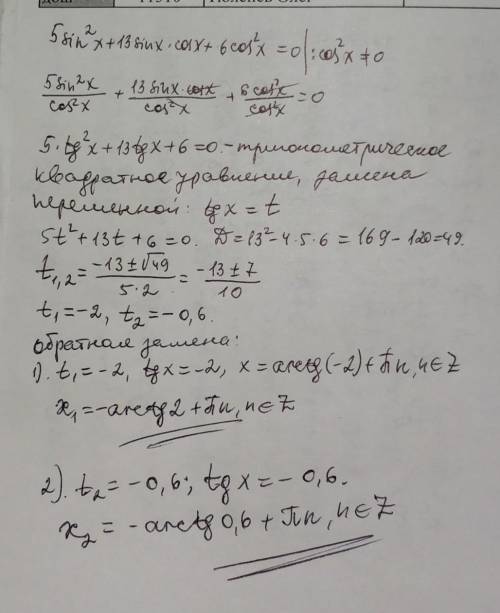 5sin²x+13sinx·cosx+6cos²x=0 |:cos²x≠0
5sin²x/cos²x + 13sinx·cosx/cos²x + 6cos²x/cos²x =0
5·tg²x+13tgx+6=0.-тригонометрическое
квадратное уравнение, замена
переменной: tgx=t
5t²+13t+6=0. D=13²-4·5·6=169-120=49.
t₁,₂=(-13±√49)/(5·2)=(-13±7)/10
t₁=-2, t₂=-0,6.
обратная замена:
1). t₁=-2, tgx=-2, x=arctg(-2)+πn, n∈Z
x₁=-arctg2+πn, n∈Z
2). t₂=-0,6; tgx=-0,6.
x₂=-arctg0,6+πn, n∈Z